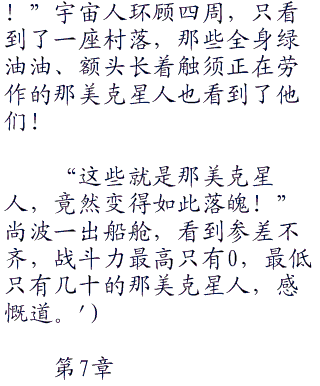 ！”宇宙人环顾四周，只看
到了一座村落，那些全身绿
油油、额头长着触须正在劳
作的那美克星人也看到了他
们！
“这些就是那美克星
人，竟然变得如此落魄！”
尚波一出船舱，看到参差不
齐，战斗力最高只有0，最低
只有几十的那美克星人，感
慨道。')
第7章